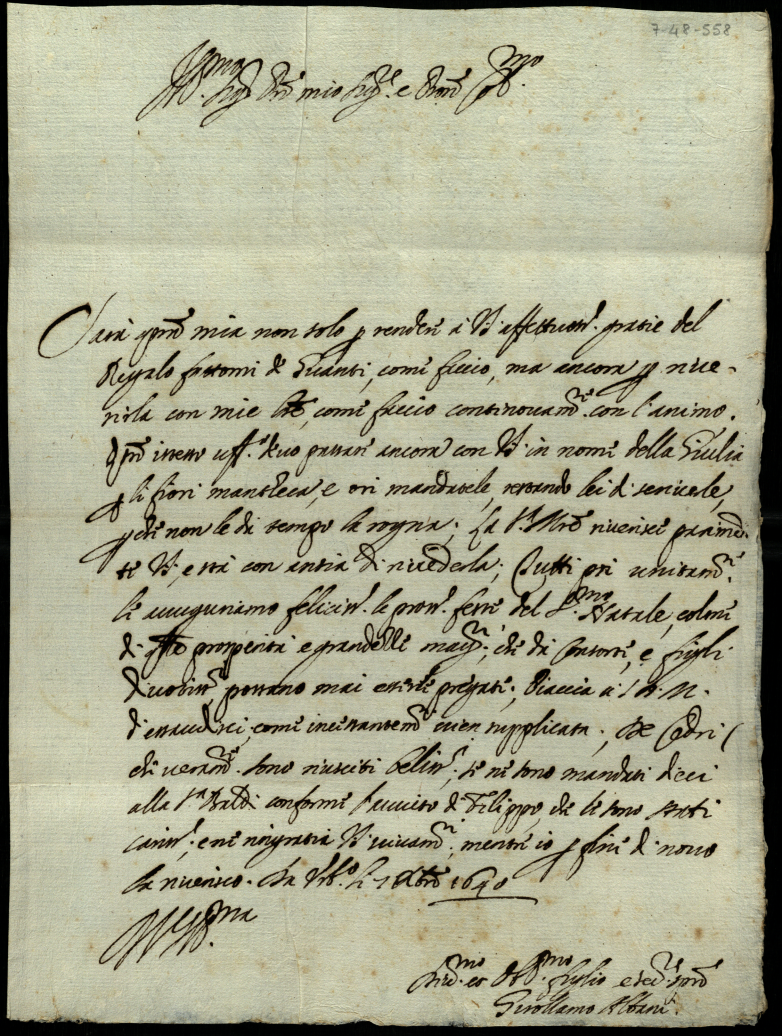 7-48-558
Ill.mo Sig.r Pne mio Sig.r e Pne
Sarà mia non solo p rendere à V.S. affettuos.e gratie del
Regalo fattomi de Guanti, come faccio, ma ancora p rive-
rirla con mie lre, come faccio continovam.te con l'animo.
istesso uff.o devo passare ancora con V.S. in nome della Giulia
p li fiori manteca, e ori mandatele, restando lei di servirle,
p che non le dà tempo la rogna; La S.ra Mre riverisce parimen-
te V.S. e stà con ansia di rivederla; Tutti poi unitam.te
le auguriamo feliciss.e le pros.e feste del S.mo Natale, colme
di prosperità e grandezze magg.ri, che da Consorte, e figli
devotiss.i possano mai essere pregate; Piaccia à S. D. M.
d'essaudirci, come incessantem.te vien supplicata; De Cedri (
che veram.te sono riusciti bellis.i; se ne sono mandati dieci
alla S.ra Baldi conforme l'avviso di Filippo, che le sono stati
cariss.i, e ne ringratia V.S. vivam.te; mentre io p fine di novo
la riverisco. Da Urb.o li Xbre 1690
Dev.mo et Obb.mo figlio e
Girollamo Albani